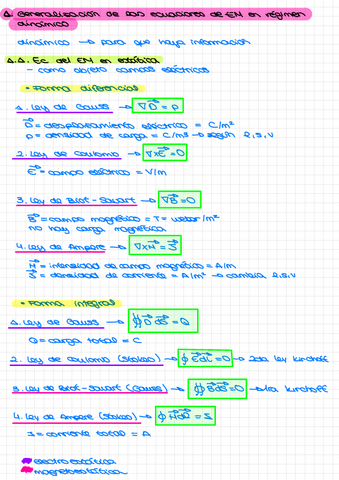 1. Generalización de las ecuaciones de EM en régimen
dinámico
dinámico → para que haya información
1.1. Ec. del EM en estática
- como objeto campos eléctricos
• Forma diferencias
1. Ley de Gauss → ∇D⃗ = ρ
D⃗ = desplazamiento eléctrico = C/m²
ρ = densidad de carga = C/m³ → según l.s.v
2. Ley de Coulomb → ∇xE⃗ = 0
E⃗ = campo eléctrico = V/m
3. Ley de Biot-Savart → ∇B⃗ = 0
B⃗ = campo magnético = T = weber/m²
no hay carga magnética
4. Ley de Ampere → ∇xH⃗ = J⃗
H⃗ = intensidad de campo magnético = A/m
J⃗ = densidad de corriente = A/m² → cambia l.s.v
• Forma integras
1. Ley de Gauss → ∯ D⃗ dS⃗ = Q
Q = carga total = C
2. Ley de Coulomb (Stokes) → ∮ E⃗ dl⃗ = 0 → 2da ley kirchoff
3. Ley de Biot-Savart (Gauss) → ∯ B⃗ dS⃗ = 0 → 1ra kirchoff
4. Ley de Ampere (Stokes) → ∮ H⃗ dl⃗ = I
I = corriente total = A
electroestática
magnetoestática